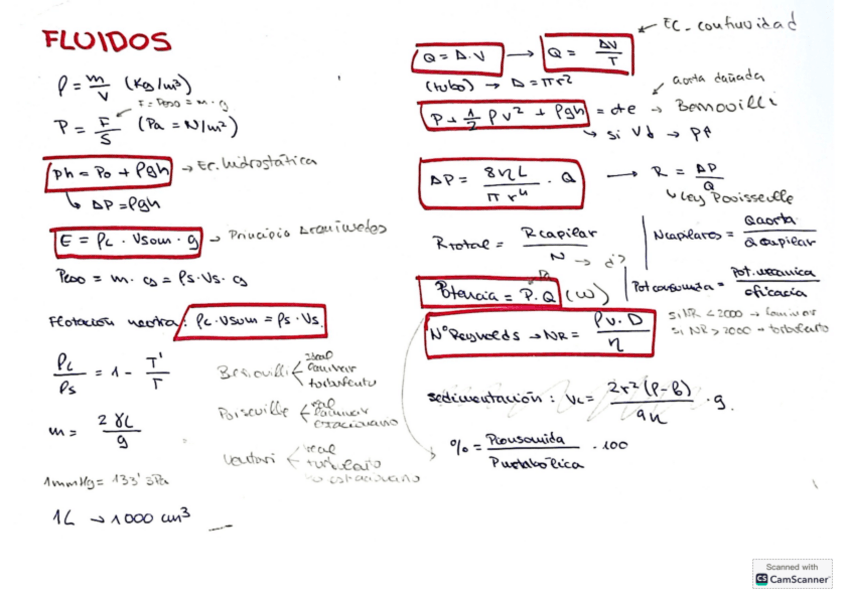 FLUIDOS
ρ = m/V (Kg/m³)
F = Peso = m · g
P = F/S (Pa = N/m²)
Ph = Po + ρgh → Ec. hidrostática
↳ ΔP = ρgh
E = ρL · Vsum · g → Principio Arquímedes
Peso = m · g = ρs · Vs · g
Flotación neutra: ρL · Vsum = ρs · Vs
ρL/ρs = 1 - T'/T
m = 2γL/g
1mmHg = 133'3Pa
1L → 1000 cm³
laminar
turbulento
Poiseuille < real
laminar
estacionario
Venturi < real
turbulento
no estacionario
Ec. continuidad
Q = A · V → Q = ΔV/T
(tubo) → A = πr²
aorta dañada
P + 1/2 ρv² + ρgh = cte → Bernouilli
↳ si V↓ → P↑
ΔP = 8ηL/πr⁴ · Q → R = ΔP/Q
↳ Ley Poiseuille
Rtotal = Rcapilar/N → d?
Ncapilares = Qaorta/Qcapilar
Potencia = P · Q (W)
Pot consumida = Pot. mecánica/eficacia
NºReynolds → NR = ρv · D/η
si NR < 2000 → laminar
si NR > 2000 → turbulento
sedimentación: VL = 2r²(ρ-ρ₀)/9η · g
% = Pconsumida/Pmetabólica · 100
Scanned with
CS CamScanner